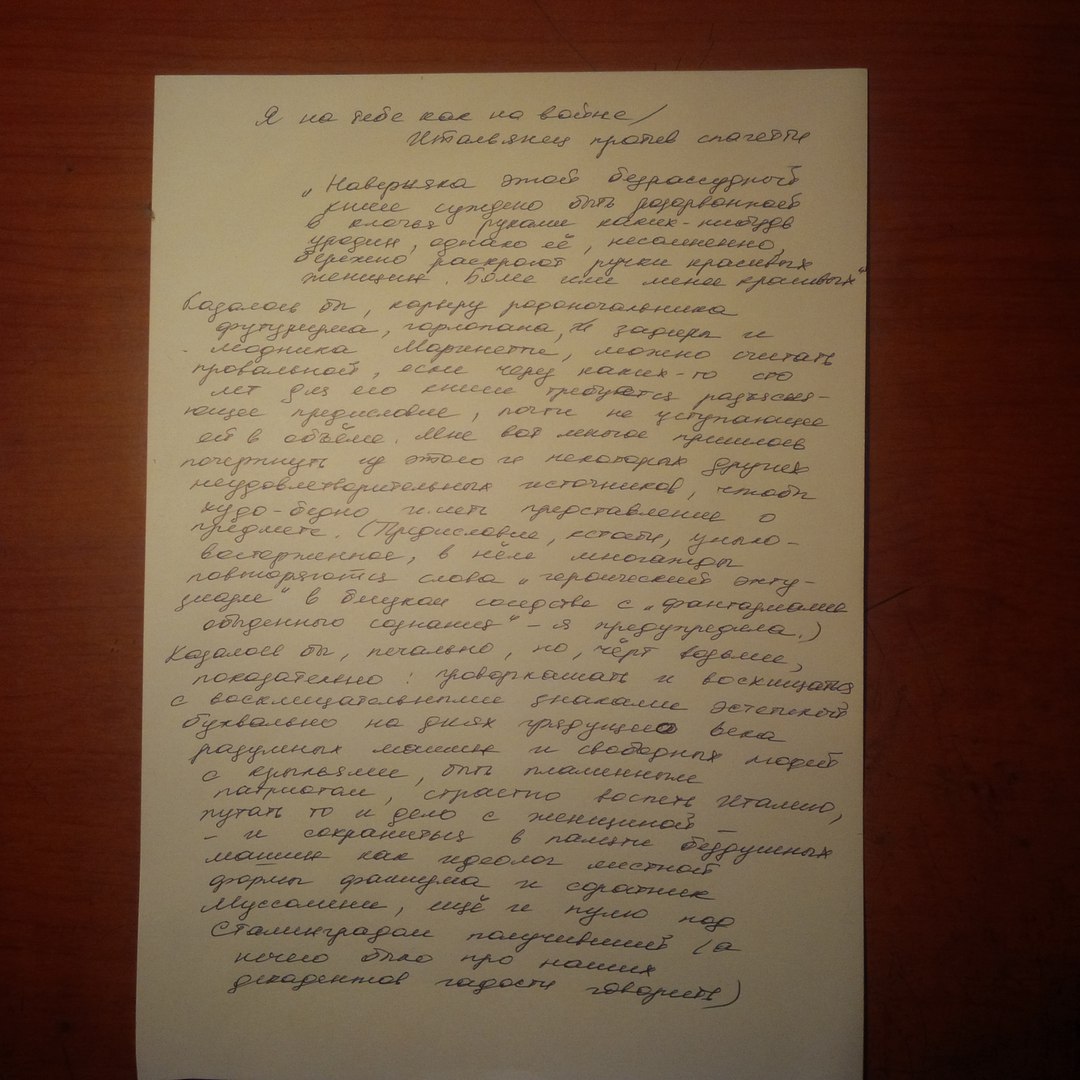 Я на тебе как на войне/
Итальянец против спагетти
„Наверняка этой безрассудной
книге суждено быть разорванной
в клочья руками каких-нибудь
уродин, однако её, несомненно,
бережно раскроют ручки красивых
женщин. Более или менее красивых“
Казалось бы, карьеру родоначальника
футуризма, горлопана, и задиры и
модника Маринетти, можно считать
провальной, если через каких-то сто
лет для его книги требуется разъясня-
ющее предисловие, почти не уступающее
ей в объёме. Мне вот многое пришлось
почерпнуть из этого и некоторых других
неудовлетворительных источников, чтобы
худо-бедно иметь представление о
предмете. (Предисловие, кстати, уныло-
восторженное, в нём многажды
повторяются слова „героический энту-
зиазм“ в близком соседстве с „фантазмами
обыденного сознания“ – я предупредила.)
Казалось бы, печально, но, чёрт возьми,
показательно: проворкать и восхищаться
с восклицательными знаками эстетикой
буквально на днях грядущего века
разумных машин и свободных людей
с крыльями, быть пламенным
патриотом, страстно воспеть Италию,
путать то и дело с женщиной –
– и сохраниться в памяти бездушных
машин как идеолог местной
формы фашизма и соратник
Муссолини, ещё и пулю под
Сталинградом получивший (а
нечего было про наших
декадентов гадости говорить)